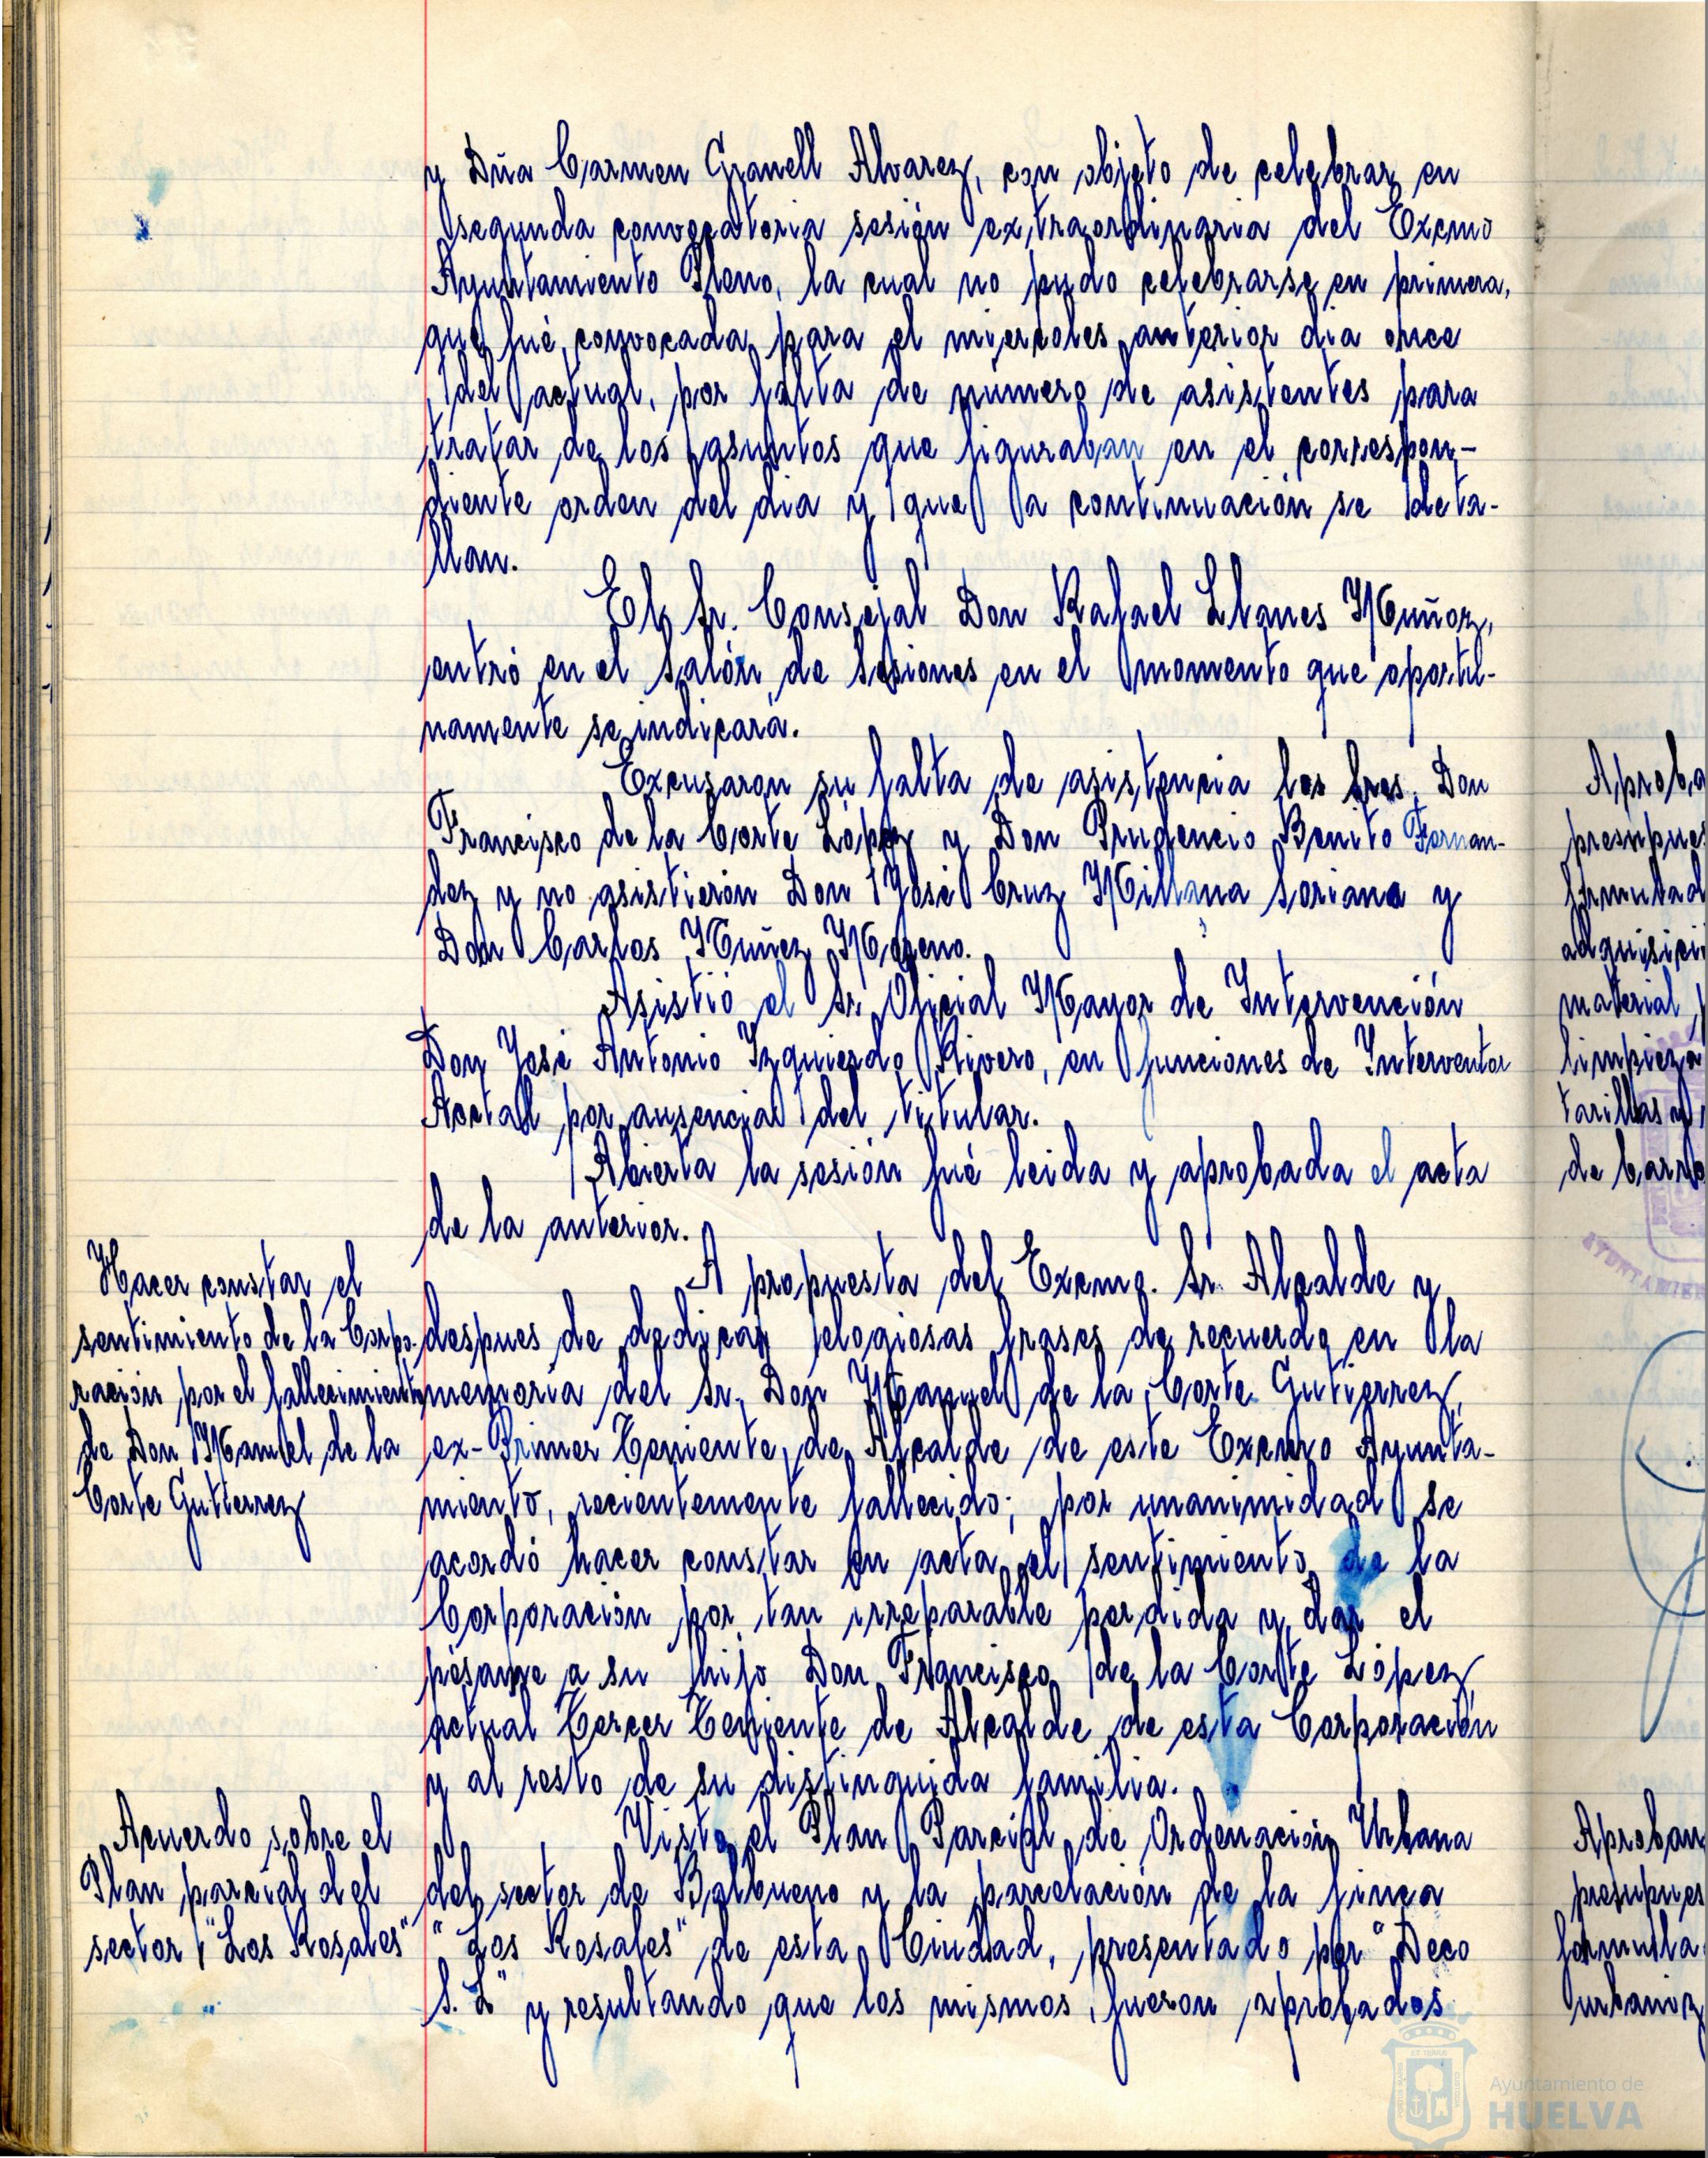 y Dña Carmen Granell Alvarez, con objeto de celebrar en
segunda convocatoria sesión extraordinaria del Excmo
Ayuntamiento Pleno, la cual no pudo celebrarse en primera,
que fué convocada para el miercoles anterior dia once
del actual, por falta de número de asistentes para
tratar de los asuntos que figuraban en el correspon-
diente orden del dia y que a continuación se deta-
llan.
El Sr. Consejal Don Rafael Llanes Muñoz,
entró en el salón de Sesiones en el momento que oportu-
namente se indicará.
Excusaron su falta de asistencia los Sres. Don
Francisco de la Corte López y Don Prudencio Benito Fernan-
dez y no asistierón Don José Cruz Millana Soriano y
Don Carlos Núñez Moreno.
Asistió el Sr. Oficial Mayor de Intervención
Don José Antonio Izquierdo Rivero, en funciones de Interventor
Acctal por ausencia del titular.
Abierta la sesión fué leida y aprobada el acta
de la anterior.
Hacer constar el
sentimiento de la Corpo-
ración por el fallecimiento
de Don Manuel de la
Corte Gutierrez
A propuesta del Excmo. Sr. Alcalde y
despues de dedicar elogiosas frases de recuerdo en la
memoria del Sr. Don Manuel de la Corte Gutierrez,
ex-Primer Teniente de Alcalde de este Excmo Ayunta-
miento, recientemente fallecido; por unanimidad se
acordó hacer constar en acta el sentimiento de la
Corporación por tan irreparable perdida y dar el
pésame a su hijo Don Francisco de la Corte López
actual Tercer Teniente de Alcalde de esta Corporación
y al resto de su distinguida familia.
Acuerdo sobre el
Plan parcial del
sector "Los Rosales"
Visto el Plan Parcial de Ordenación Urbana
del sector de Balbueno y la parcelación de la finca
"Los Rosales" de esta Ciudad, presentado por "Deco
S. L" y resultando que los mismos fueron aprobados
Aproba
presupues
formulad
adquisici
material
limpieza
tarillas y
de barro
AYUNTAMIEN
Aproban
presupues
formula
urbaniz
Ayuntamiento de
HUELVA